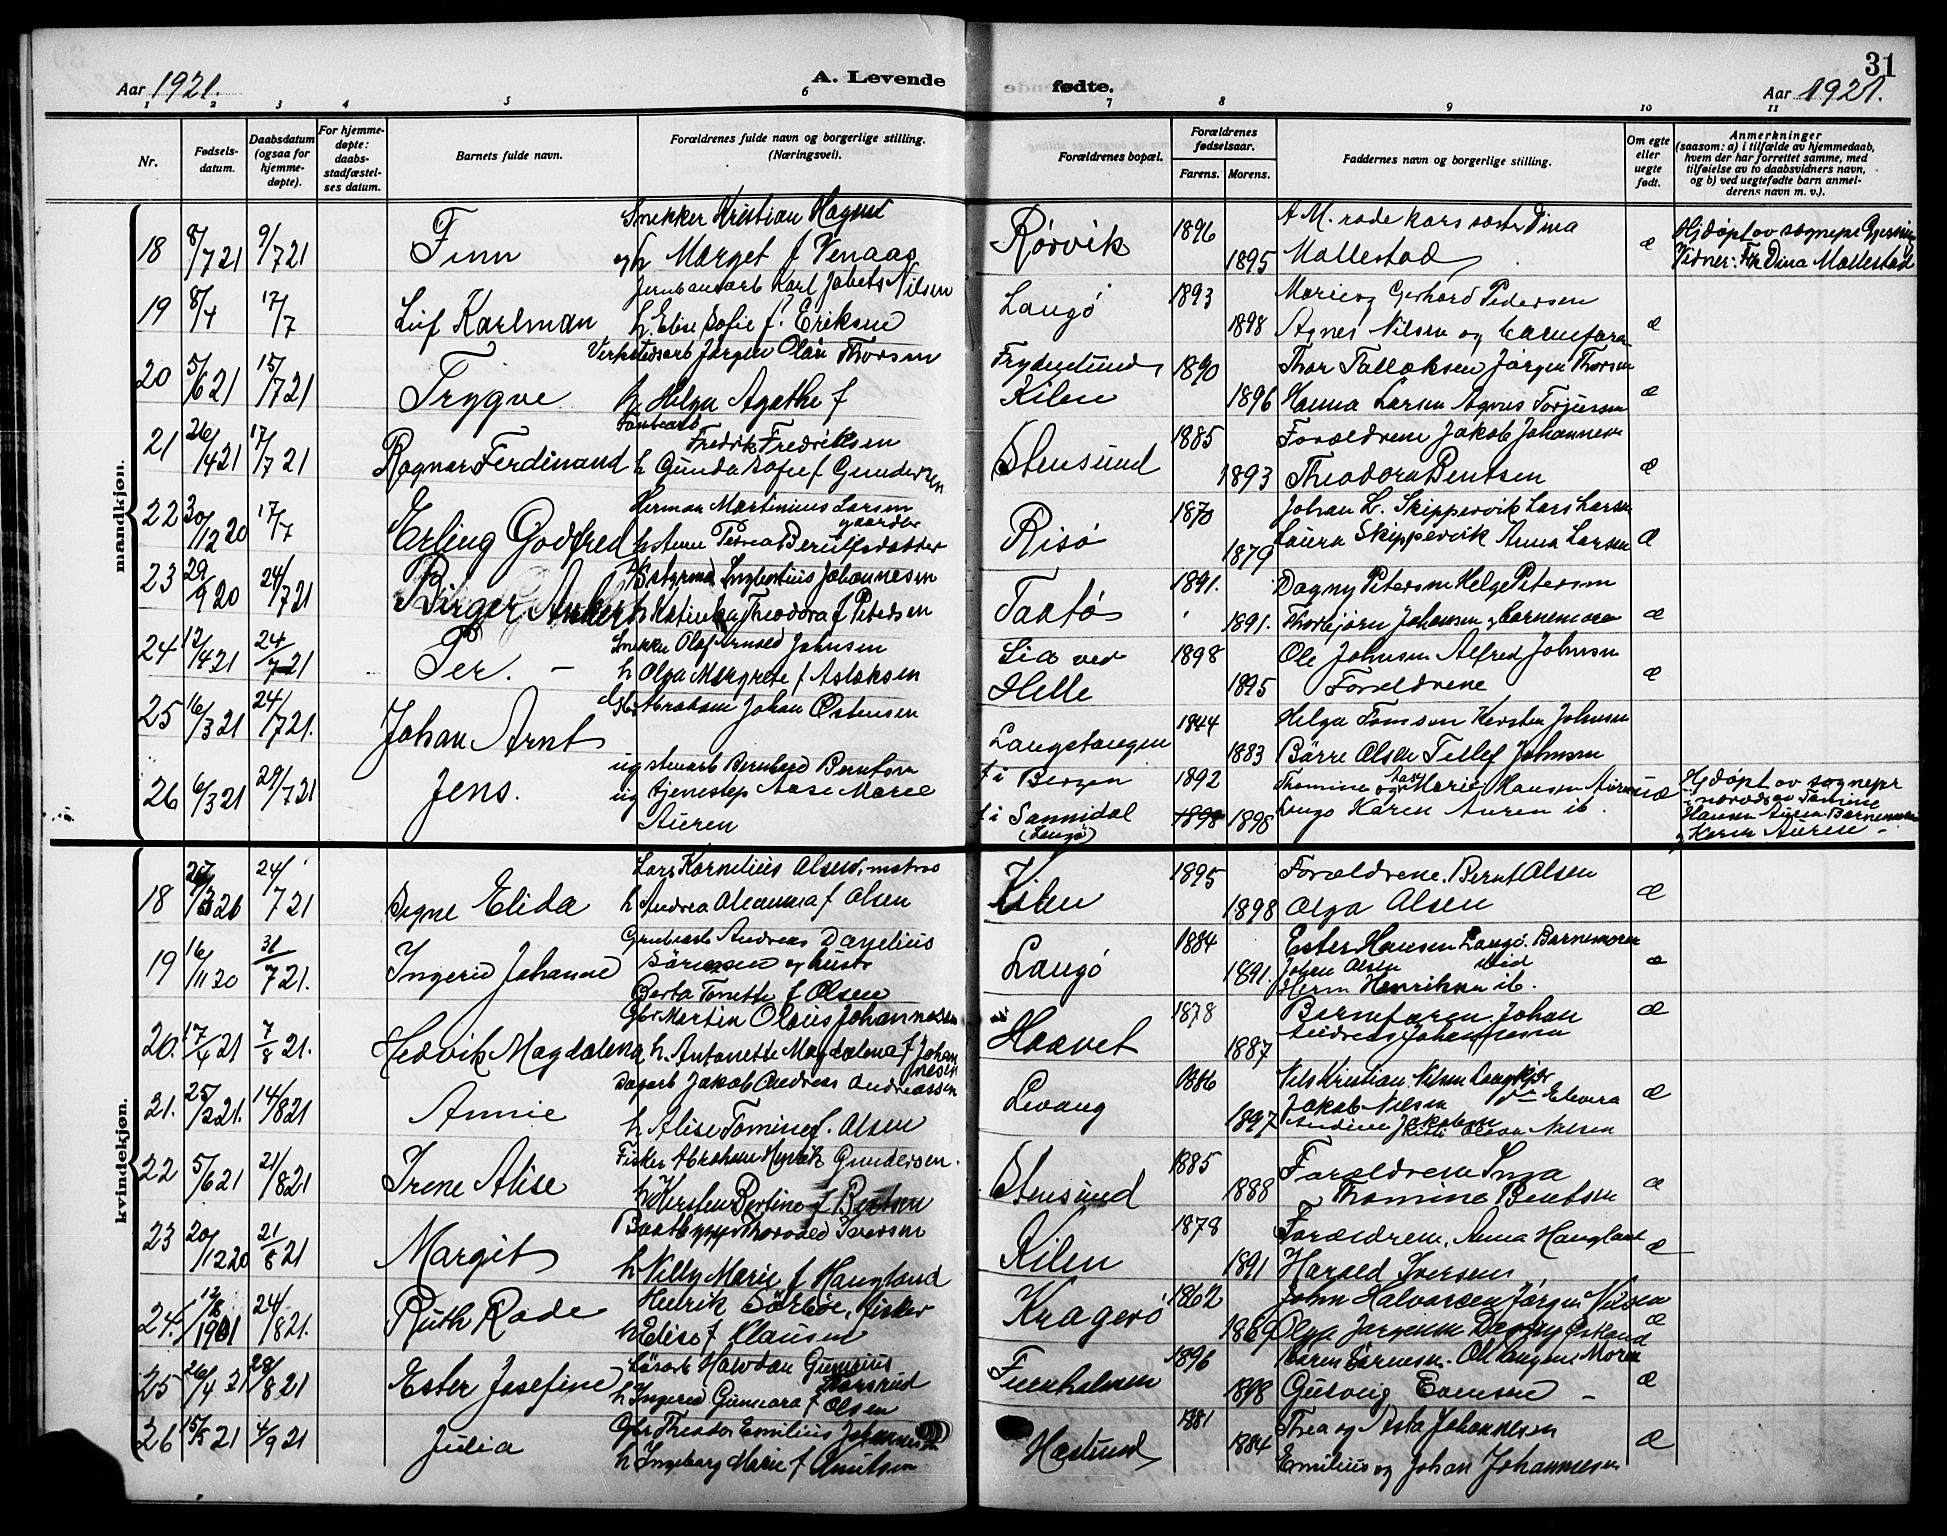 31
Aar 1921.
A. Levende
fødte.
Aar 1921.
1 2 3 4 5 6 7 8 9 10 11
Nr.
Fødsels-
datum.
Daabsdatum
(ogsaa for
hjemme-
døpte).
For hjemme-
døpte:
daabs-
stadfæstel-
ses datum.
Barnets fulde navn.
Forældrenes fulde navn og borgerlige stilling.
(Næringsvei).
Forældrenes bopæl.
Forældrenes
fødselsaar.
Farens. Morens.
Faddernes navn og borgerlige stilling.
Om egte
eller
uegte
født.
Anmerkninger
(saasom: a) i tilfælde av hjemmedaab,
hvem der har forrettet samme, med
tilføielse av to daabsvidners navn,
og b) ved uegtefødte barn anmel-
derens navn m. v.).
mandkjøn.
18 8/7 21 9/7 21 Finn
Snekker Kristian Hagnes
og h Marget f Venaas
Rørvik 1896 1895
A M. røde kors søster Dina
Mallestad
æ
Hj døpt av sognepr
Vidner: Frk Dina Mallestad
19 8/4 17/7 Leif Karlman
Jernbanearb Karl Jabets Nilsen
h. Elise Sofie f. Eriksen
Langø 1893 1898
Marie og Gerhard Pedersen
Agnes Nilsen og barnefaren
æ
20 5/6 21 15/7 21 Trygve
Verkstedsarb Jørgen Olai Thorsen
h Helga Agathe f
Frydenlund
Kilen 1890 1896
Thor Tallaksen Jørgen Thorsen
Hanna Larsen Agnes Torjussen
æ
21 26/4 21 17/7 21 Ragnar Ferdinand
Fredrik Fredriksen
h Gunda Sofie f Gundersen
Stensund 1885 1893
Forældrene Jakob Johannesen
Theodora Bentsen
æ
22 30/12 20 17/7 Erling Godfred
Herman Martinius Larsen
gaardbr
h Anne Petrea Berulfsdatter
Risø 1870 1879
Johan L. Skippervik Lars Larsen
Laura Skippervik Anna Larsen
æ
23 29/9 20 24/7 21 Birger Anker
styrmd Ingbertius Johannesen
h Katinka Theodora f Petersen
Taatø 1891. 1891.
Dagny Petersen Helge Petersen
Thorbjørn Johansen, barnemoren
æ
24 12/4 21 24/7 21 Per. -
Snekker Olaf Arnold Johnsen
h Olga Margrete f Aslaksen
Lia ved
Helle 1898 1895
Ole Johnsen Alfred Johnsen
Forældrene
æ
25 16/3 21 24/7 21. Johan Arnt
Abraham Johan Østensen
Langetangen 1844 1883
Helga Tomson Kersten Johnsen
Børre Olsen Tellef Johnsen
26 6/3 21 29/7 21 Jens.
ug stuearb Bernhard Berntsen
ug tjenestep Aase Marie
Auren
f i Bergen
f i Sannidal
(Langø)
1892 1898 1898
Thomine og Marie Hansen Auren
Langø Karen Auren ib.
uæ
Hj døpt av sognepr
i nærvær av Tomine
Hansen Auren Barnemoren
og Karen Auren -
kvindekjøn.
18 24/7 21 Signe Elida
Lars Kornelius Olsen, matros
h Andrea Oleanna f Olsen
Kilen 1895 1898
Forældrene. Bernt Olsen
Olga Olsen
æ
19 16/11 20 31/7 21. Ingerid Johanne
Grubearb Andreas Danelius
Sörensen og hustr
Berta Tonette f Olsen
Langø 1884 1891.
Ester Hansen Langø. Barnemoren
Johan Olsen ibid
Herm Henriksen ib.
æ
20. 17/4 21 7/8 21. Hedvik Magdalena
Gbr Martin Olaus Johannesen
h. Antonette Magdalena f Johan
nesen
Haavet 1878 1887
Barnefaren Johan
Andreas Johannesen
æ
21. 25/2 21. 14/8 21 Annie
Dagarb Jakob Andreas Andreassen
h Alise Tomine f. Olsen
Levang 1886 1897
Nils Kristian Nilsen Langkjær
Jakob Nilsen do Elvera
Andrine Jakobsen Kitti Olson Nilsen
æ
22 5/6 21 21/8 21 Irene Alise
Fisker Abraham Henrik Gundersen.
h Kersten Bertine f Bentsen
Stensund 1885 1888
Forældrene Inga
Thomine Bentsen
æ
23 20/12 20 21/8 21 Margit
Baatbygger Thorvald Iversen
h Nilly Marie f Haugland
Kilen 1878 1891
Forældrene, Anna Haugland
Harald Iversen
æ
24. 12/8 1901 24/8 21. Ruth Rode
Henrik Sörböe, fisker
h Elise f Clausen
Kragerö 1862 1869
John Halvorsen Jørgen Nilsen
Olga Jørgensen Dagny Østland
æ
25 26/4 21 28/8 21 Ester Josefine
Løsarb Halvdan Gunerius
Korsrud
h Ingerid Gunnara f Olsen
Furuholmen 1896 1898
Gudveig Evensen -
æ
26 15/5 21 4/9 21 Julia
Gbr Theodor Emilius Johannesen
h Ingeborg Marie f Knutsen
Hestsund 1881 1884
Thea og Asta Johannesen
Emilius og Johan Johannesen
æ